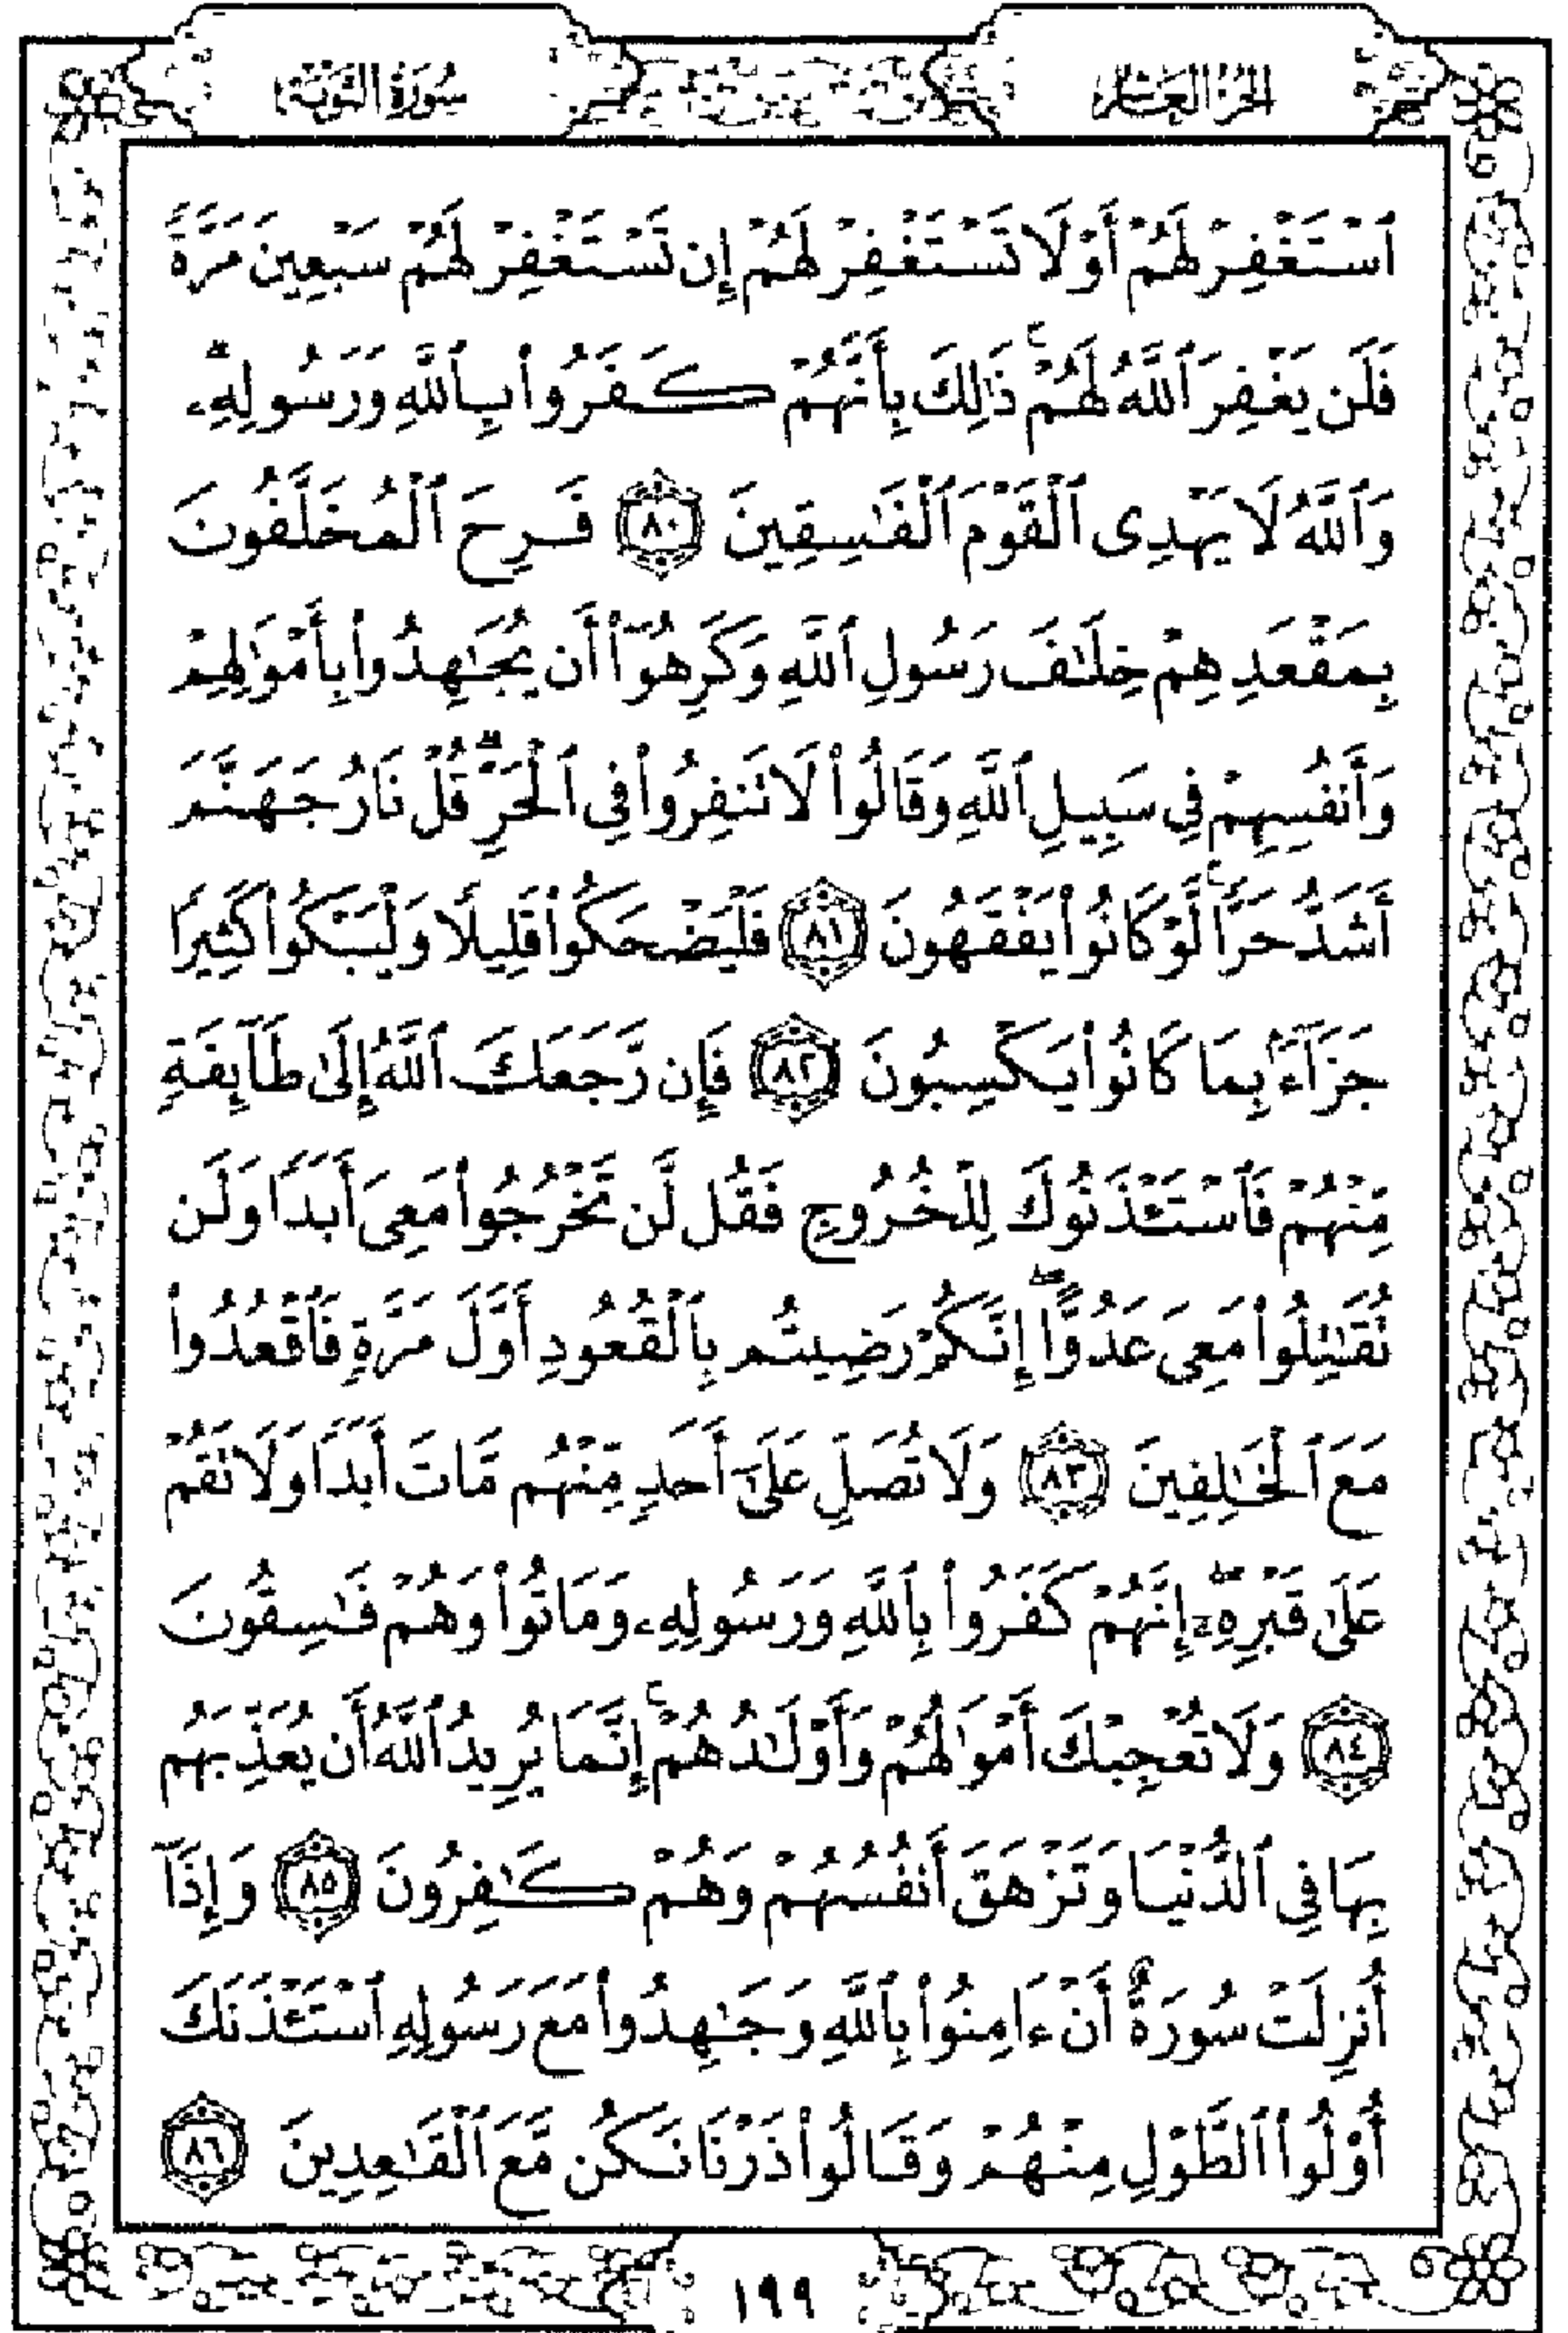 الجزء العاشر
سورة التوبة
ٱسْتَغْفِرْ لَهُمْ أَوْ لَا تَسْتَغْفِرْ لَهُمْ إِن تَسْتَغْفِرْ لَهُمْ سَبْعِينَ مَرَّةً
فَلَن يَغْفِرَ ٱللَّهُ لَهُمْ ۚ ذَٰلِكَ بِأَنَّهُمْ كَفَرُوا۟ بِٱللَّهِ وَرَسُولِهِۦ ۗ
وَٱللَّهُ لَا يَهْدِى ٱلْقَوْمَ ٱلْفَـٰسِقِينَ ٨٠ فَرِحَ ٱلْمُخَلَّفُونَ
بِمَقْعَدِهِمْ خِلَـٰفَ رَسُولِ ٱللَّهِ وَكَرِهُوٓا۟ أَن يُجَـٰهِدُوا۟ بِأَمْوَٰلِهِمْ
وَأَنفُسِهِمْ فِى سَبِيلِ ٱللَّهِ وَقَالُوا۟ لَا تَنفِرُوا۟ فِى ٱلْحَرِّ ۗ قُلْ نَارُ جَهَنَّمَ
أَشَدُّ حَرًّا ۚ لَّوْ كَانُوا۟ يَفْقَهُونَ ٨١ فَلْيَضْحَكُوا۟ قَلِيلًا وَلْيَبْكُوا۟ كَثِيرًا
جَزَآءًۢ بِمَا كَانُوا۟ يَكْسِبُونَ ٨٢ فَإِن رَّجَعَكَ ٱللَّهُ إِلَىٰ طَآئِفَةٍ
مِّنْهُمْ فَٱسْتَـْٔذَنُوكَ لِلْخُرُوجِ فَقُل لَّن تَخْرُجُوا۟ مَعِىَ أَبَدًا وَلَن
تُقَـٰتِلُوا۟ مَعِىَ عَدُوًّا ۖ إِنَّكُمْ رَضِيتُم بِٱلْقُعُودِ أَوَّلَ مَرَّةٍ فَٱقْعُدُوا۟
مَعَ ٱلْخَـٰلِفِينَ ٨٣ وَلَا تُصَلِّ عَلَىٰٓ أَحَدٍ مِّنْهُم مَّاتَ أَبَدًا وَلَا تَقُمْ
عَلَىٰ قَبْرِهِۦٓ ۖ إِنَّهُمْ كَفَرُوا۟ بِٱللَّهِ وَرَسُولِهِۦ وَمَاتُوا۟ وَهُمْ فَـٰسِقُونَ
٨٤ وَلَا تُعْجِبْكَ أَمْوَٰلُهُمْ وَأَوْلَـٰدُهُمْ ۚ إِنَّمَا يُرِيدُ ٱللَّهُ أَن يُعَذِّبَهُم
بِهَا فِى ٱلدُّنْيَا وَتَزْهَقَ أَنفُسُهُمْ وَهُمْ كَـٰفِرُونَ ٨٥ وَإِذَآ
أُنزِلَتْ سُورَةٌ أَنْ ءَامِنُوا۟ بِٱللَّهِ وَجَـٰهِدُوا۟ مَعَ رَسُولِهِ ٱسْتَـْٔذَنَكَ
أُو۟لُوا۟ ٱلطَّوْلِ مِنْهُمْ وَقَالُوا۟ ذَرْنَا نَكُن مَّعَ ٱلْقَـٰعِدِينَ ٨٦
١٩٩